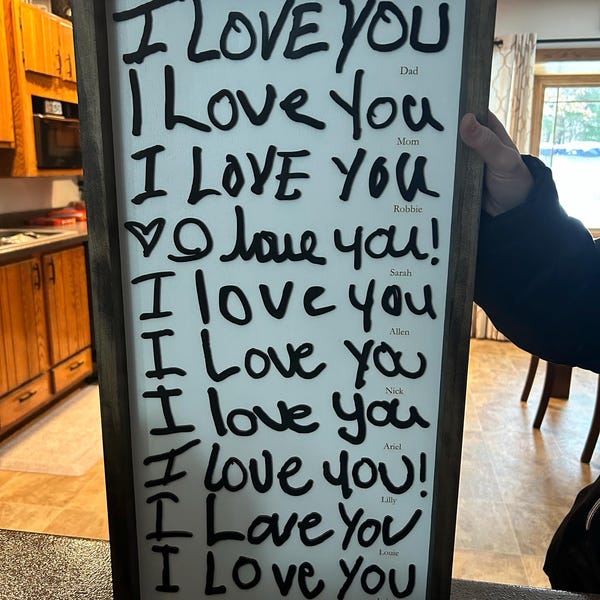 I LOVE YOU
Dad
I Love you
Mom
I LOVE YOU
Robbie
I love you!
Sarah
I love you
Allen
I Love you
Nick
I love you
Ariel
I love you!
Lilly
I Love You
Louie
I LOVE YOU